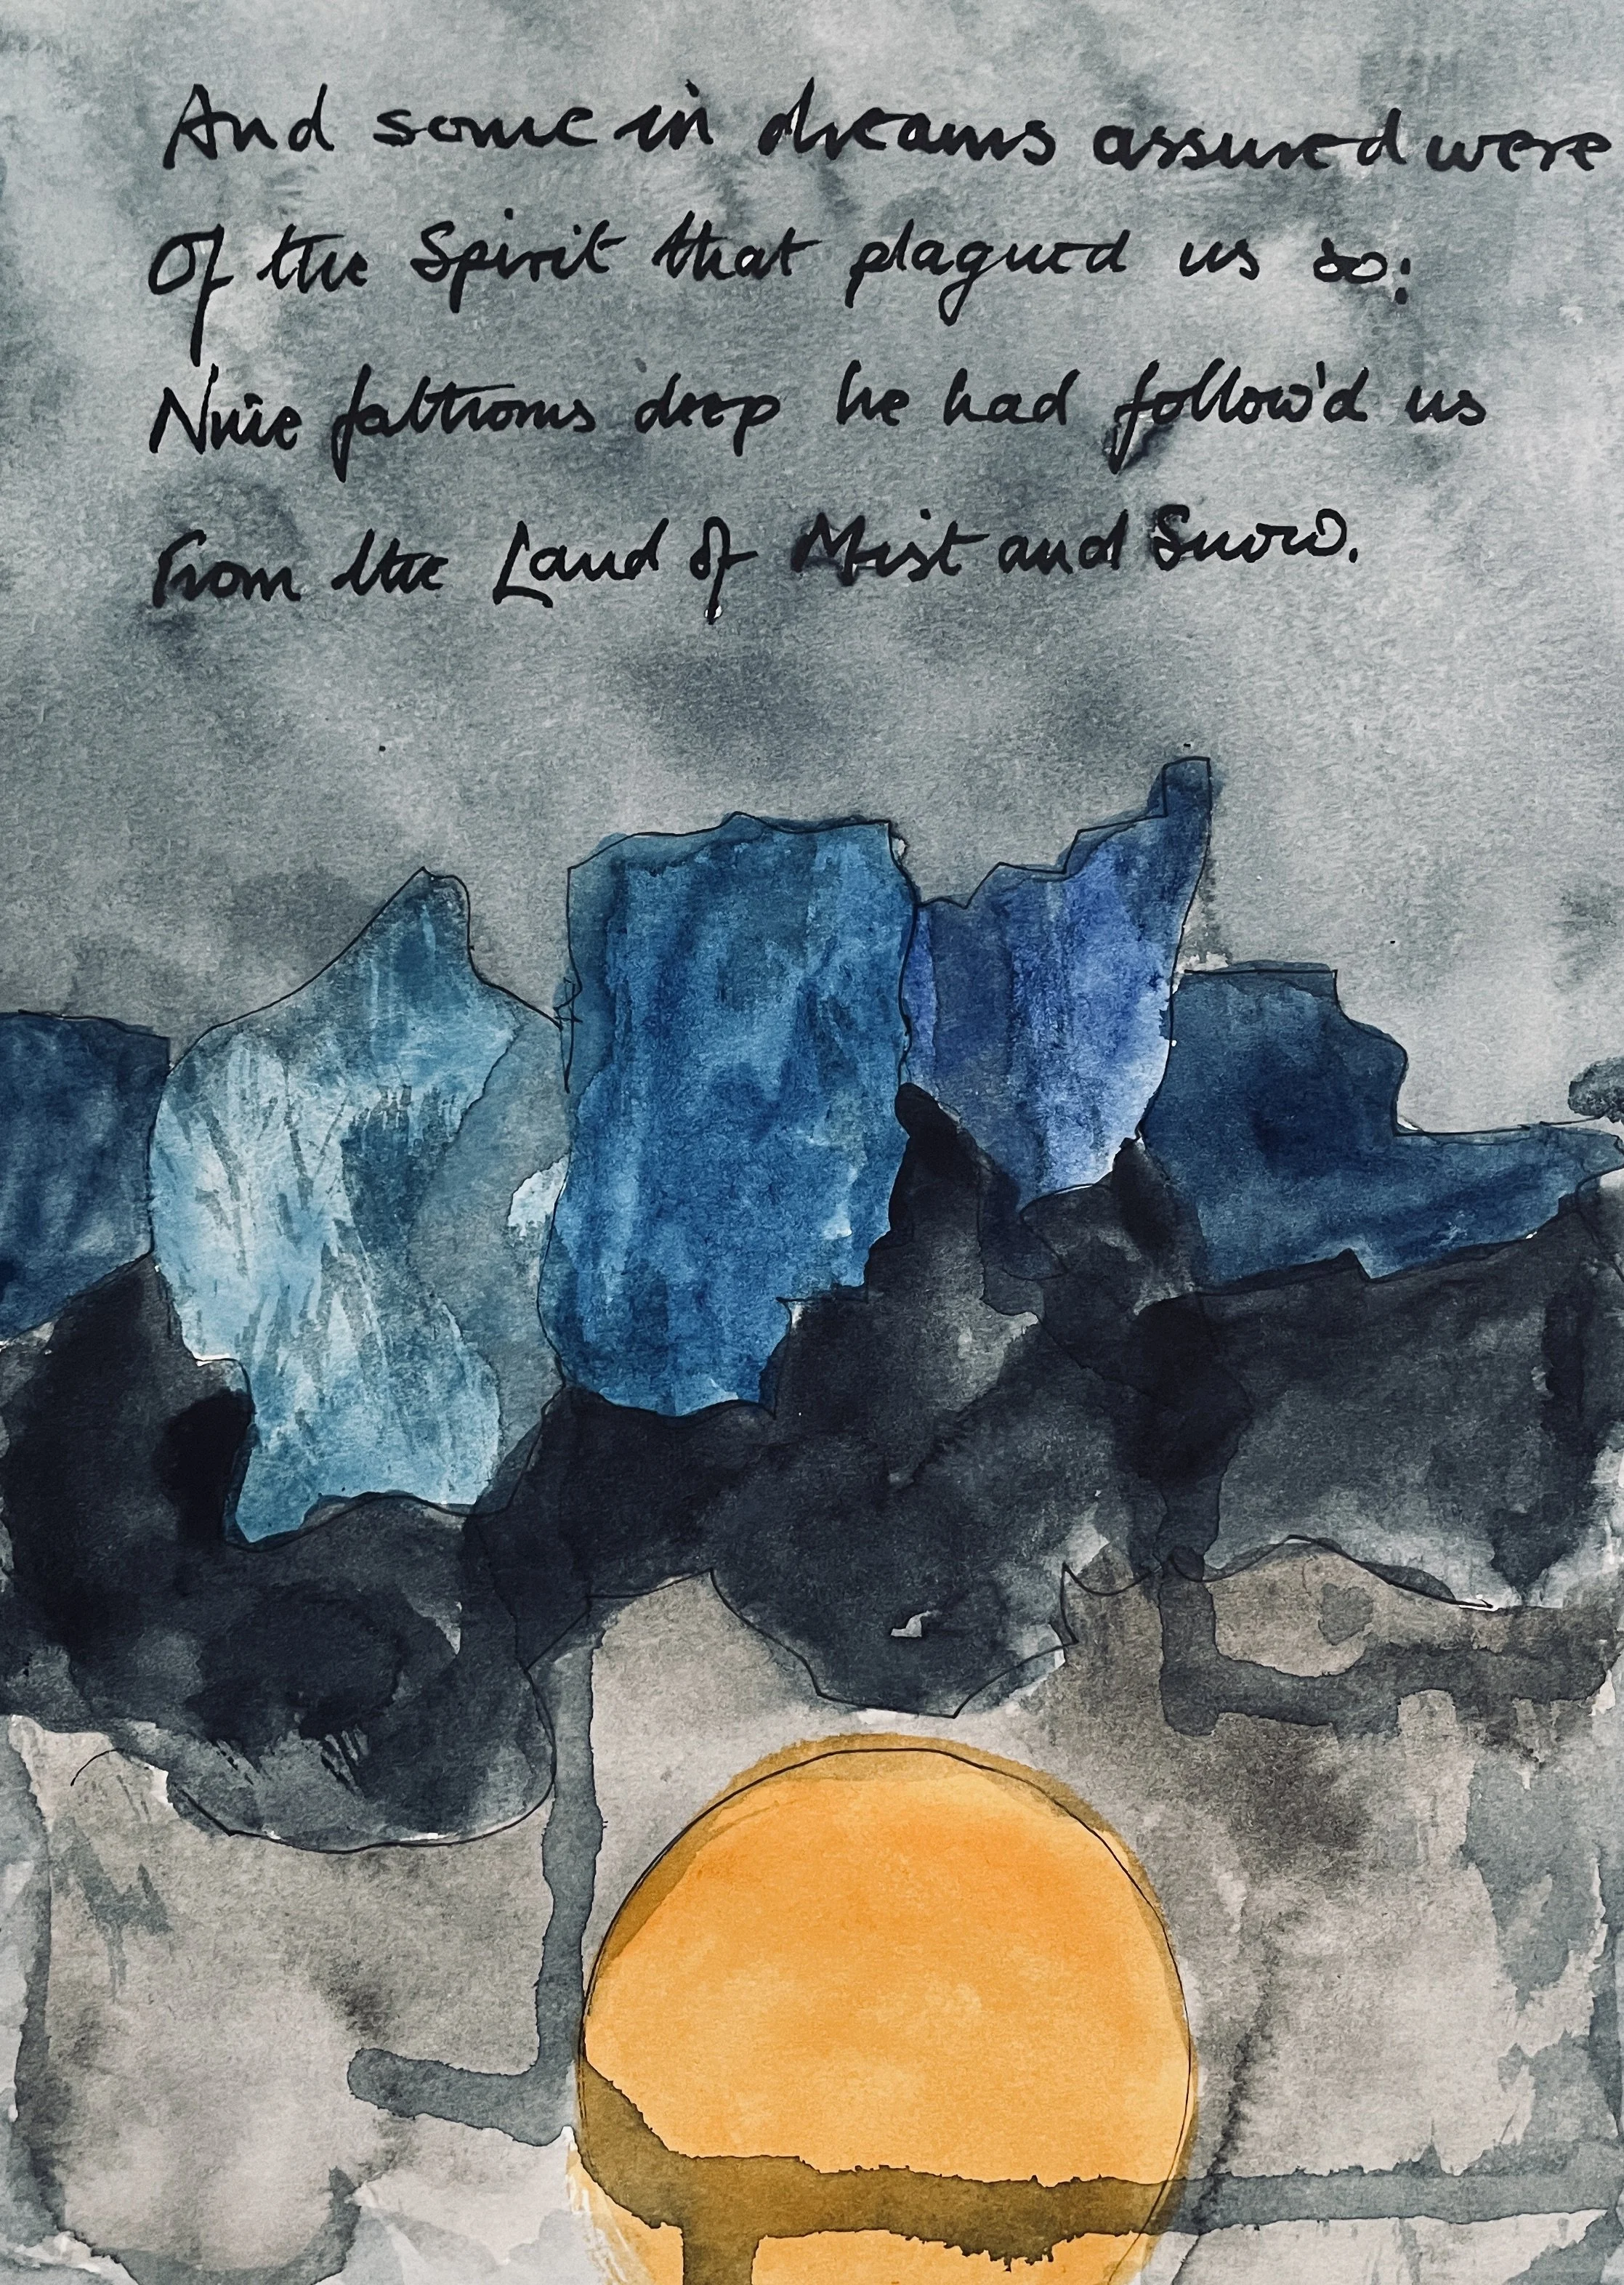 And some in dreams assured were
Of the Spirit that plagued us so:
Nine fathoms deep he had follow'd us
From the Land of Mist and Snow.